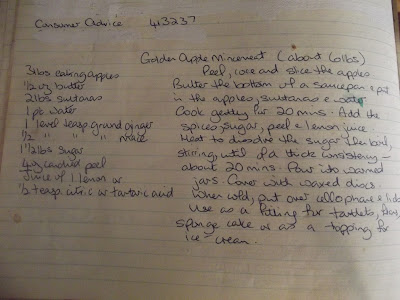 Consumer Advice 413237
Golden Apple Mincemeat (about 6lbs)
3lbs eating apples
1/2 oz butter
2lbs sultanas
1 pt water
1 level teasp ground ginger
1/2 " " mace
1 1/2 lbs sugar
4oz candied peel
Juice of 1 lemon or
1/2 teasp citric or tartaric acid
Peel, core and slice the apples
Butter the bottom of a saucepan & put
in the apples, sultanas & water
Cook gently for 20 mins. Add the
spices, sugar, peel & lemon juice
Heat to dissolve the sugar then boil,
stirring, until of a thick consistency –
about 20 mins. Pour into warmed
jars. Cover with waxed discs.
When cold, put over cellophane & lids
Use as a filling for tartlets, flans,
sponge cake or as a topping for
ice-cream.